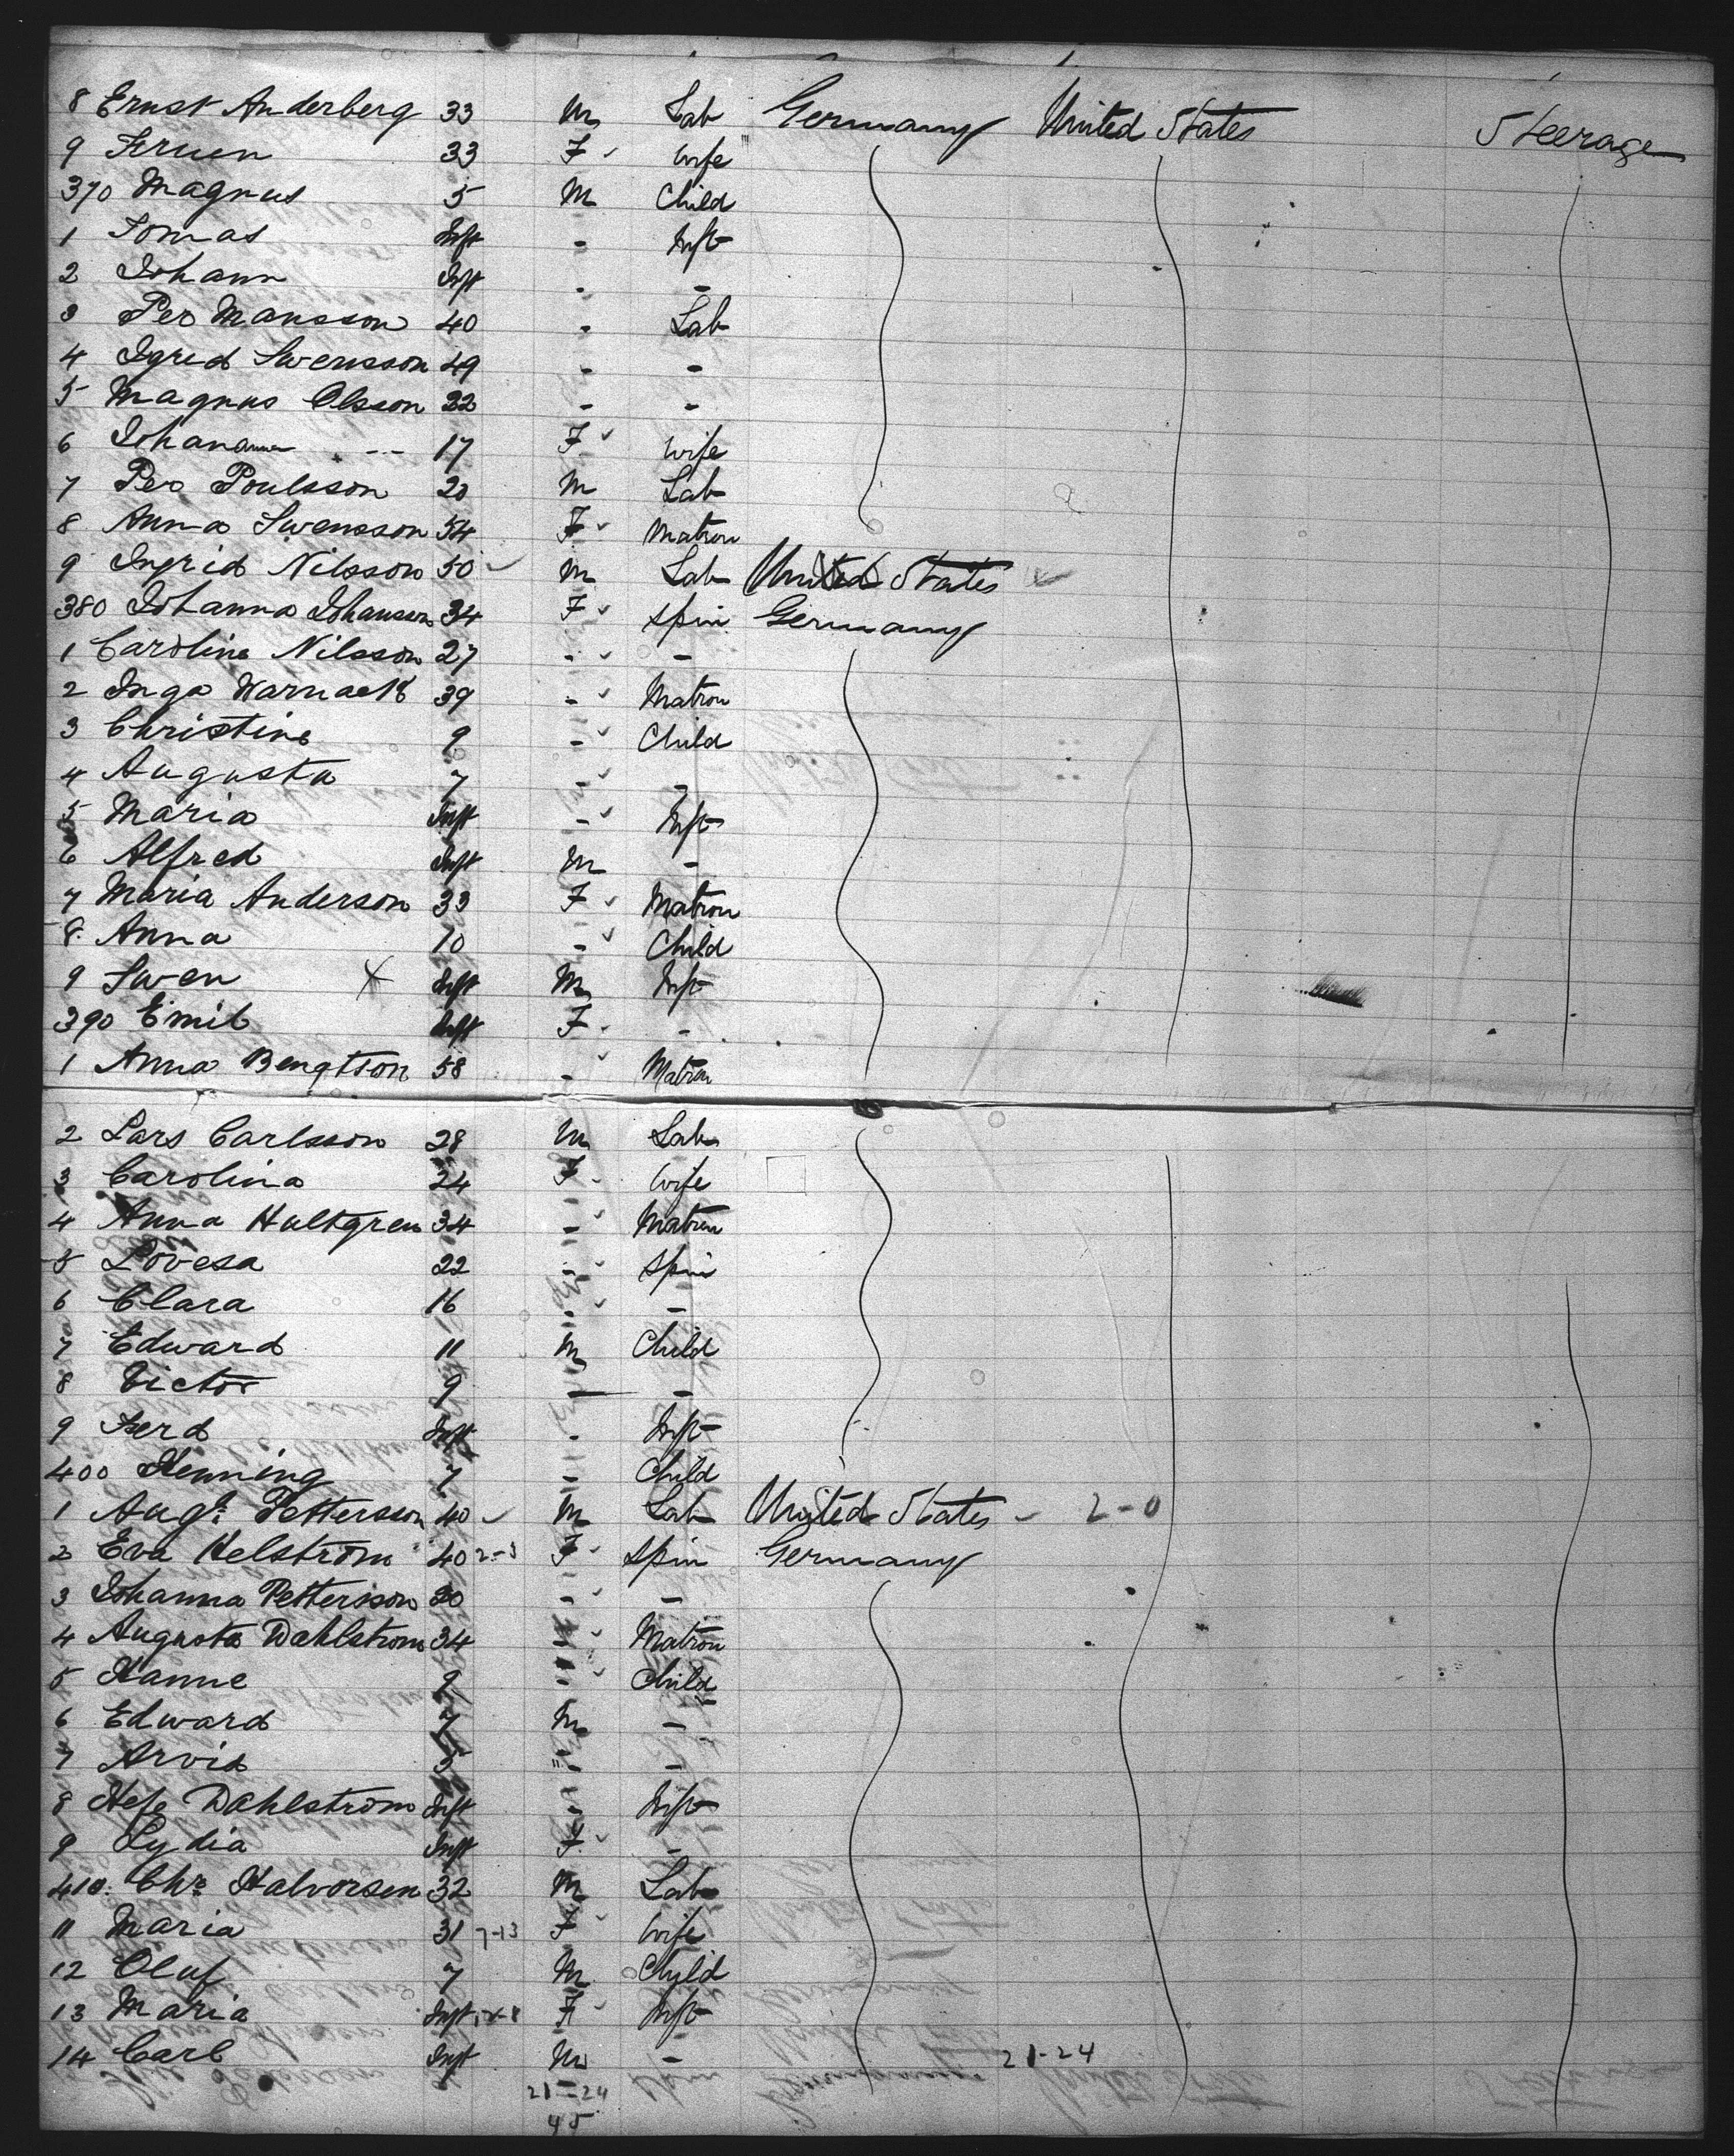 8 Ernst Anderberg 33 M Lab Germany United States Steerage
9 Fruen 33 F wife
370 Magnus 5 M Child
1 Tomas Inft - Inft
2 Johann Inft - -
3 Per Mansson 40 - Lab
4 Igrid Swensson 49 - -
5 Magnus Olsson 22 - -
6 Johanna -- 17 F wife
7 Per Poulsson 20 M Lab
8 Anna Swensson 54 F Matron
9 Ingrid Nilsson 50 M Lab United States
380 Johanna Johansson 34 F Spin Germany
1 Caroline Nilsson 27 - -
2 Inga 39 - Matron
3 Christine 9 - Child
4 Augusta 7 - -
5 Maria Inft - Inft
6 Alfred Inft M -
7 Maria Anderson 33 F Matron
8 Anna 10 - Child
9 Swen Inft M Inft
390 Emil Inft F -
1 Anna Bengtson 58 - Matron
2 Lars Carlsson 28 M Lab
3 Carolina 24 F wife
4 Anna Hultgren 34 - Matron
5 Lovesa 22 - Spin
6 Clara 16 - -
7 Edward 11 M Child
8 Victor 9 - -
9 Inft - Inft
400 Henning 7 - Child
1 Augt. Petterson 40 M Lab United States - 2-0
2 Eva Helstrom 40 2-3 F Spin Germany
3 Johanna Pettersson 20 - -
4 Augusta Dahlstrom 34 - Matron
5 Hanne 9 - Child
6 Edward 7 M -
7 Arvid 5 " -
8 Dahlstrom Inft - Inft
9 Lydia Inft F -
410 Chr. Halvorsen 32 M Lab
11 Maria 31 7-13 F wife
12 Oluf 7 M Child
13 Maria Inft F Inft
14 Carl Inft M - 21-24
21-24
45